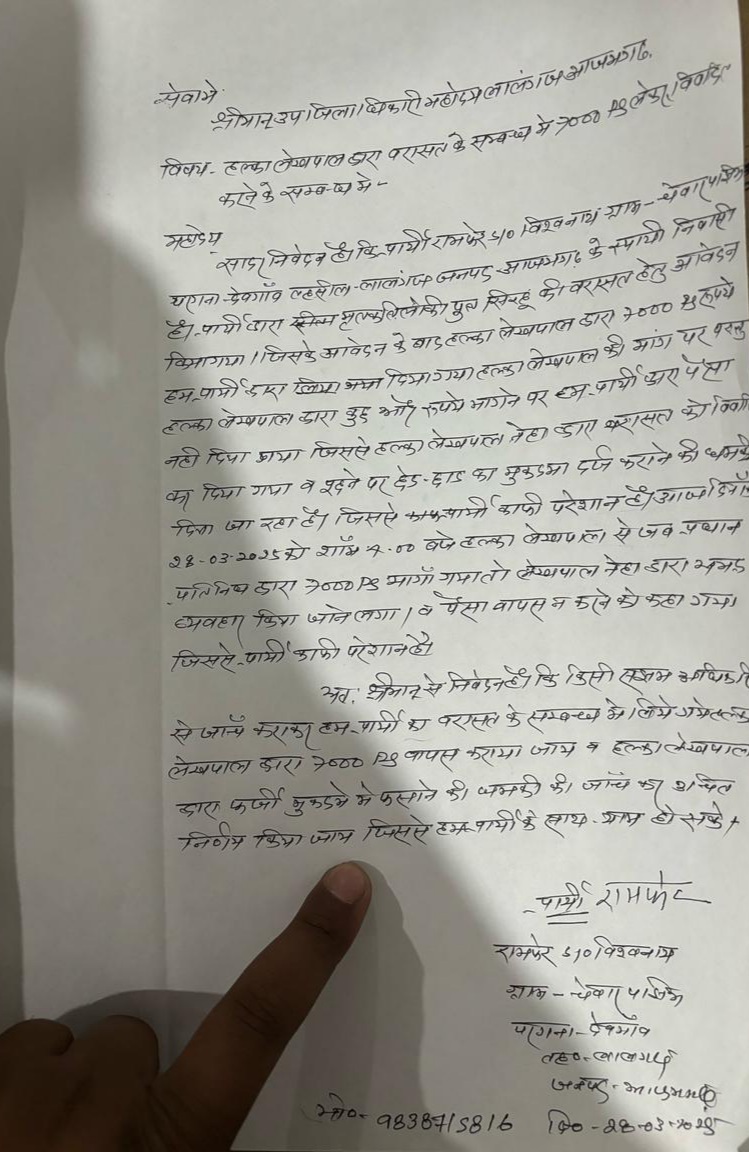 सेवामे
श्रीमान् उप जिलाधिकारी महोदय लालगंज आजमगढ़
विषय- हल्का लेखपाल द्वारा वरासत के सम्बन्ध मे 7000 RS लेकर विवादित
करने के सम्बन्ध मे-
महोदय
सादर निवेदन है कि प्रार्थी रामफेर S/O विश्वनाथ ग्राम- चेवार पश्चिम
परगना- देवगाँव तहसील- लालगंज जनपद- आजमगढ़ के स्थायी निवासी
है। प्रार्थी द्वारा मृतक त्रिलोकी पुत्र की वरासत हेतु आवेदन
किया गया। जिसके आवेदन के बाद हल्का लेखपाल द्वारा 7000 RS रूपये
हम प्रार्थी द्वारा दिया गया हल्का लेखपाल की मांग पर परन्तु
हल्का लेखपाल द्वारा कुछ और रूपये मागने पर हम प्रार्थी द्वारा पैसा
नही दिया गया जिससे हल्का लेखपाल नेहा द्वारा वरासत को
कर दिया गया व पूछने पर छेड़-छाड़ का मुकदमा दर्ज कराने की धमकी
दिया जा रहा है। जिससे प्रार्थी काफी परेशान है। आज दिनाँक
28-03-2025 को शाँम 4.00 बजे हल्का लेखपाल से जब प्रधान
प्रतिनिधि द्वारा 7000 RS मागाँ गया तो लेखपाल नेहा द्वारा अभद्र
व्यवहार किया जाने लगा। व पैसा वापस न करने को कहा गया।
जिससे प्रार्थी काफी परेशान है।
अतः श्रीमान् से निवेदन है। कि किसी सक्षम अधिकारी
से जाँच कराकर हम प्रार्थी का वरासत के सम्बन्ध मे लिये गये हल्का
लेखपाल द्वारा 7000 RS वापस कराया जाय व हल्का लेखपाल
द्वारा फर्जी मुकदमे मे फसाने की धमकी की जाँच कर उचित
निर्णय किया जाय जिससे हम प्रार्थी के साथ न्याय हो सके।
प्रार्थी रामफेर
रामफेर S/O विश्वनाथ
ग्राम- चेवार पश्चिम
परगना- देवगाँव
तह०- लालगंज
जनपद- आजमगढ़
मो०- 9838715816 दि०- 28-03-2025